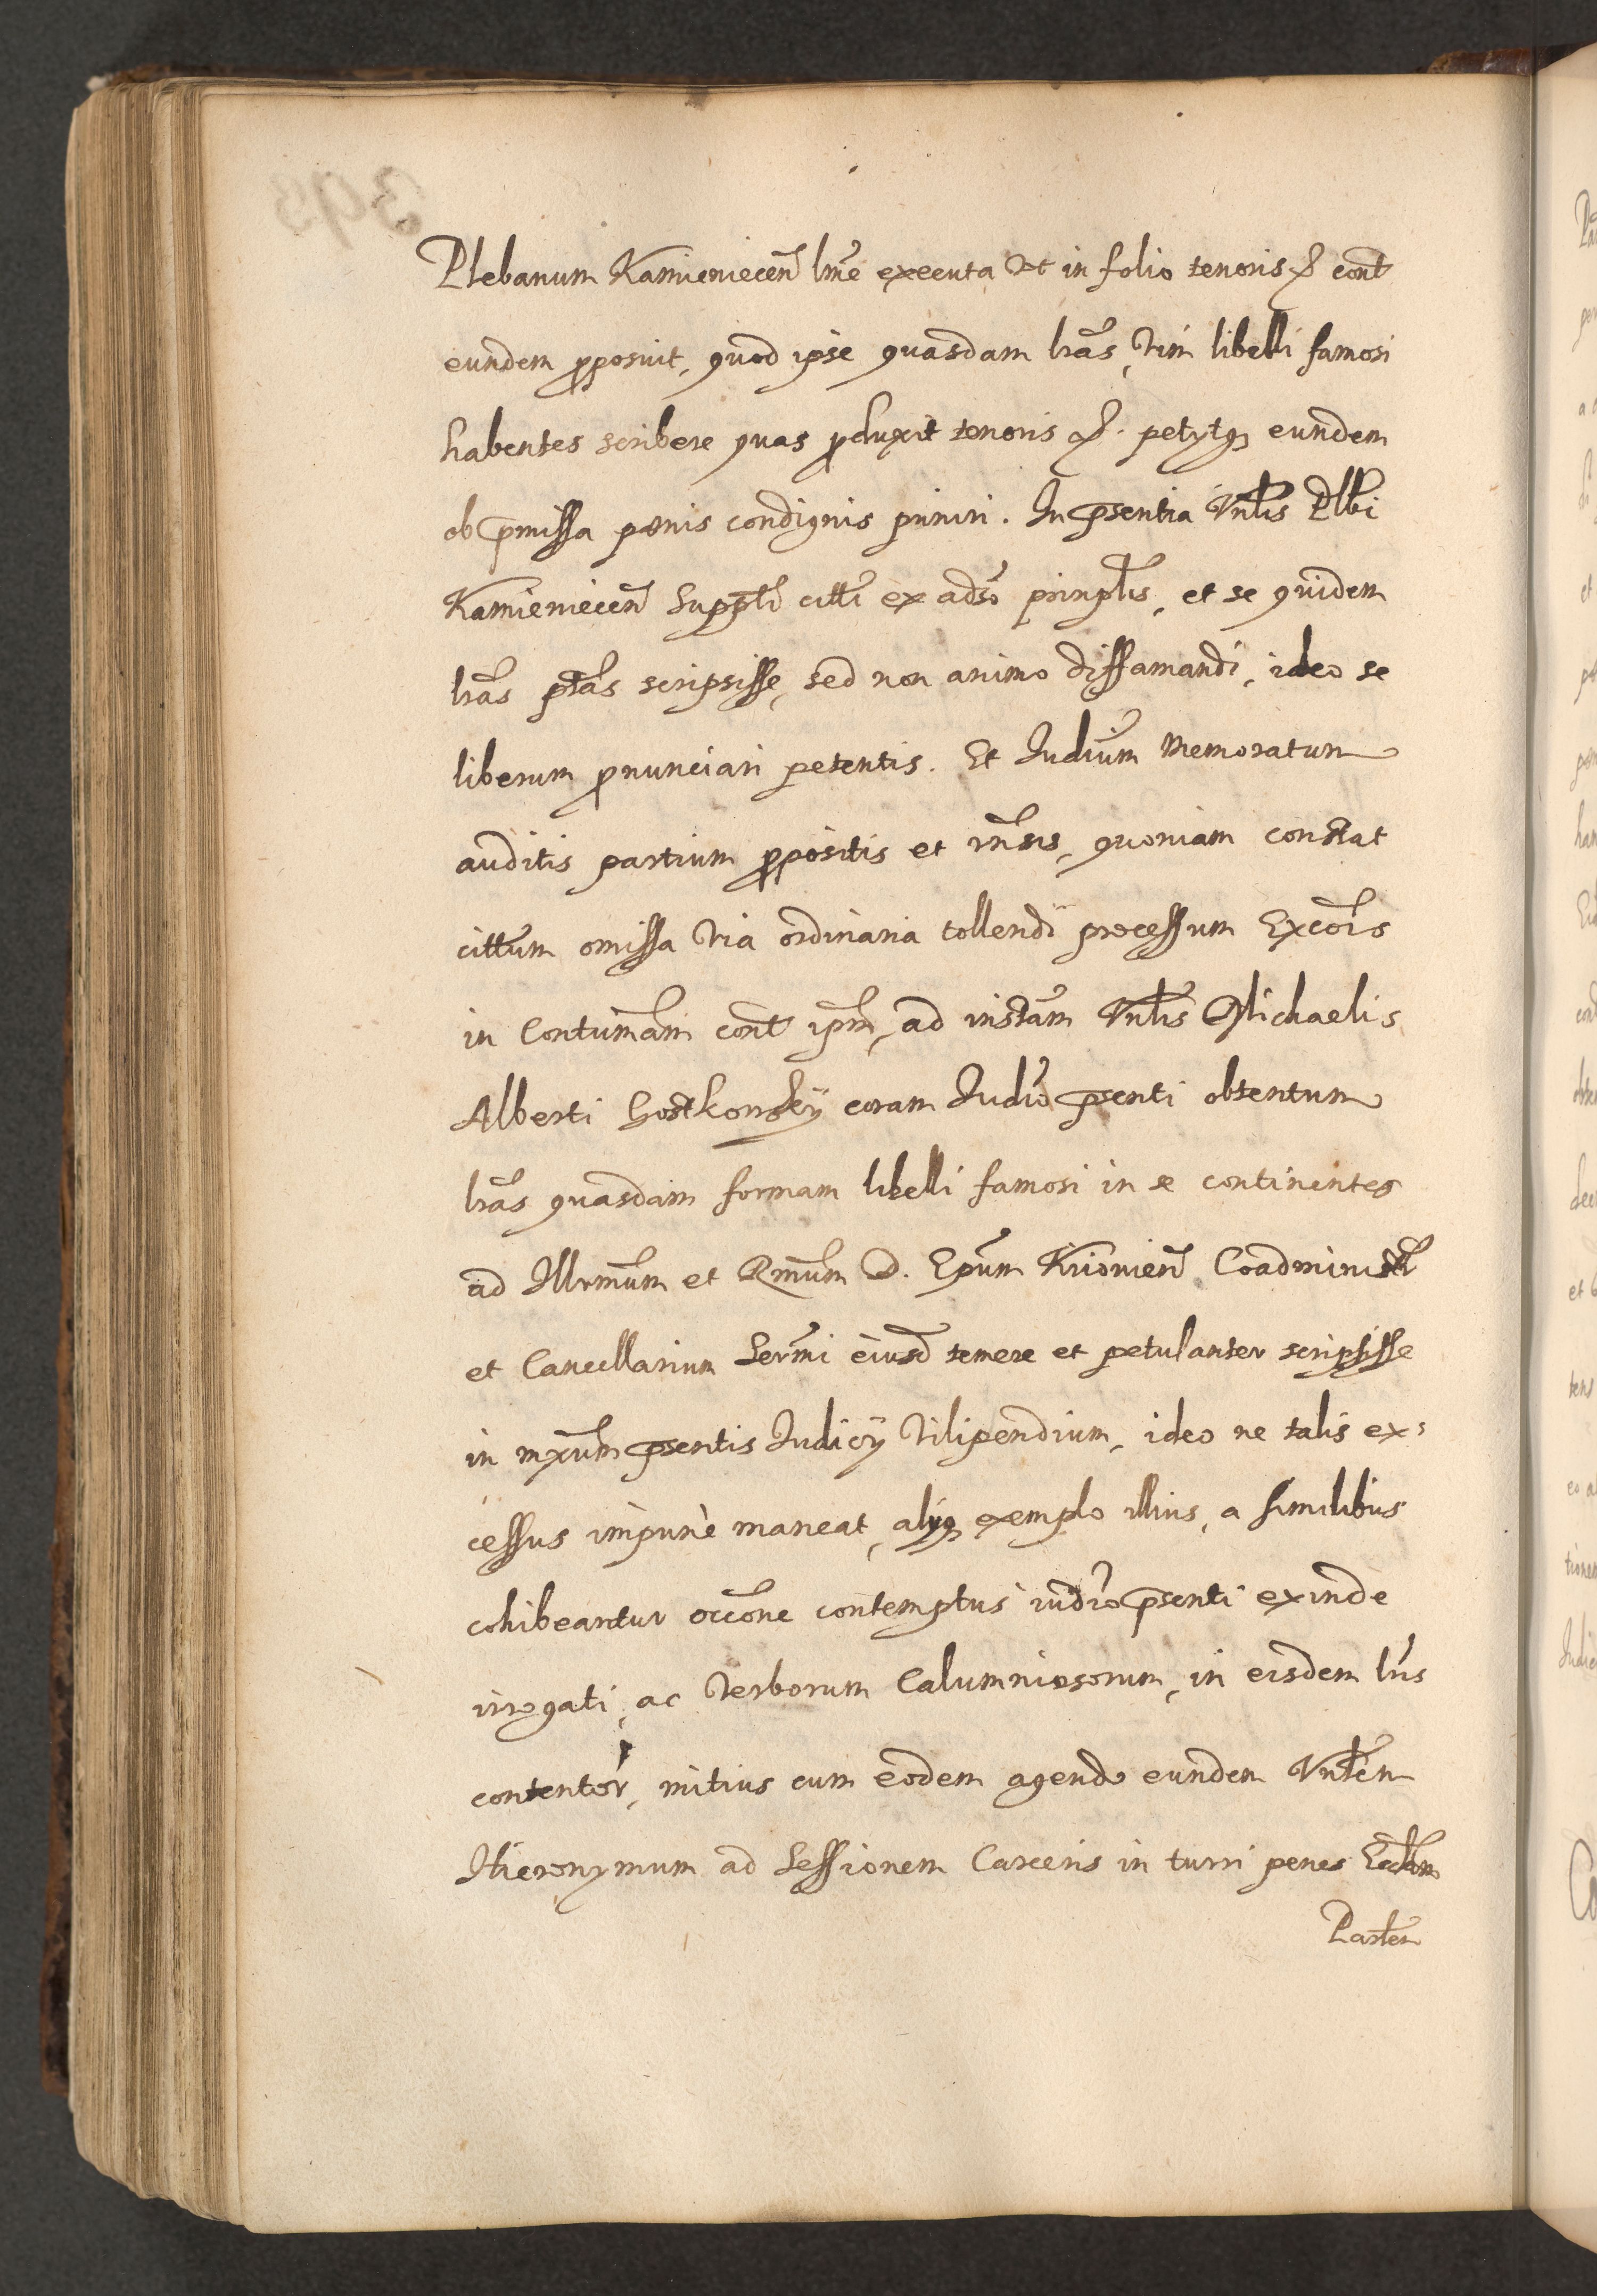 Plebanum Kamieniecen̄ lm̄e executa Vt in folio tenoris &. cont̄
eundem proposuit, quod ipse quasdam lrās, Vim libelli famosi
habentes scribere quas produxit tenoris &. petytq3 eundem
ob p̄missa pœnis condignis puniri. In p̄sentia Vnlīs Plbī
Kamieniecen̄ Supp̄lī cittī ex adso prinp̄lis, et se quidem
lrās ptās scripsisse, sed non animo diffamandi, ideo se
liberum pronunciari petentis. Et Judiūm memoratum
auditis partium propositis et rn̄sis, quoniam constat
cittum omissa Via ordinaria tollendi processum Excōis
in Contumām cont̄ ipm̄, ad instām Vnlīs Michaelis
Alberti Hostkonsky coram Judio p̄senti obtentum
lrās quasdam formam libelli famosi in se continentes
ad Illrmūm et Rmūm D. Epūm Kiioviēn Coadminist̄
et Cancellarium Sermī eiusd̄ temere et petulanter scripsisse
in mxūm p̄sentis Judicÿ Vilipendium, ideo ne talis ex=
cessus impunè maneat, alÿq3 exemplo illius, a similibus
cohibeantur occōne contemptus iudio p̄senti exinde
irrogati, ac Verborum Calumniosorum, in eisdem lrīs
contentor̄, mitius cum eodem agendo eundem Vnlēm
Hieronymum ad Sessionem Carceris in turri penes Eccl̄am